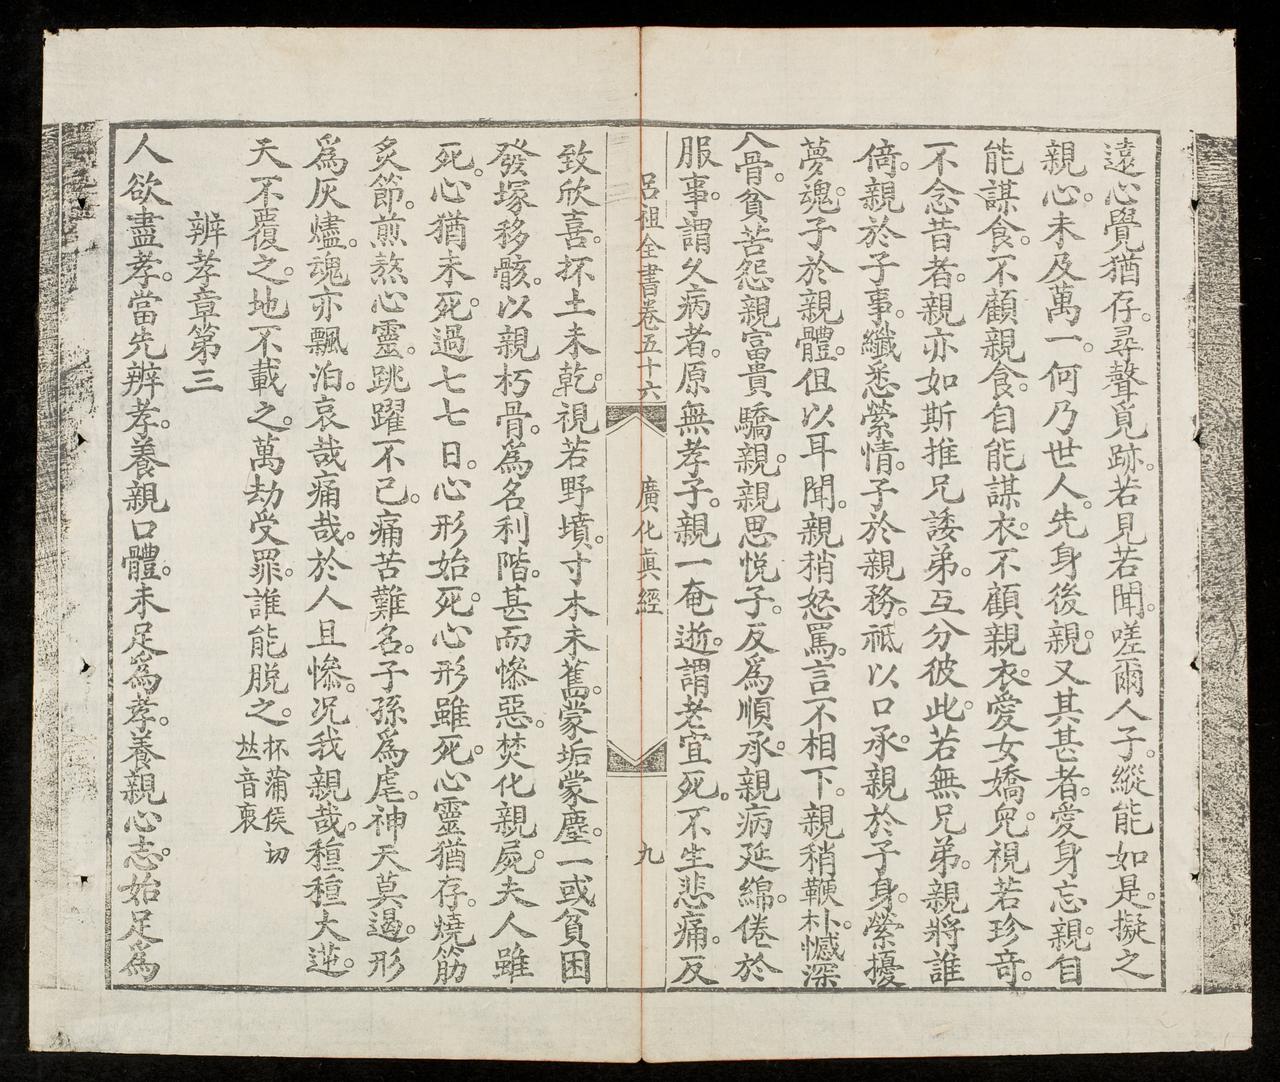 遠心覺猶存。尋聲覓跡。若見若聞。嗟爾人子。縱能如是。擬之
親心。未及萬一。何乃世人。先身後親。又其甚者。愛身忘親。自
能謀食。不顧親食。自能謀衣。不顧親衣。愛女嬌兒。視若珍奇。
不念昔者。親亦如斯。推兄諉弟。互分彼此。若無兄弟。親將誰
倚。親於子事。纖悉縈情。子於親務。祗以口承。親於子身。縈擾
夢魂。子於親體。但以耳聞。親稍怒罵。言不相下。親稍鞭朴。憾深
入骨。貧苦怨親。富貴驕親。親思悅子。反爲順承。親病延綿。倦於
服事。謂久病者。原無孝子。親一奄逝。謂老宜死。不生悲痛。反
呂祖全書卷五十六 廣化眞經 九
致欣喜。抔土未乾。視若野墳。寸木未舊。蒙垢蒙塵。一或貧困
發塚移骸。以親朽骨。爲名利階。甚而慘惡。焚化親屍。夫人雖
死。心猶未死。過七七日。心形始死。心形雖死。心靈猶存。燒筋
炙節。煎熬心靈。跳躍不已。痛苦難名。子孫爲虐。神天莫遏。形
爲灰燼。魂亦飄泊。哀哉痛哉。於人且慘。况我親哉。種種大逆。
天不覆之。地不載之。萬劫受罪。誰能脫之。抔蒲侯切
𠀤音裒
辨孝章第三
人欲盡孝。當先辨孝。養親口體。未足爲孝。養親心志。始足爲